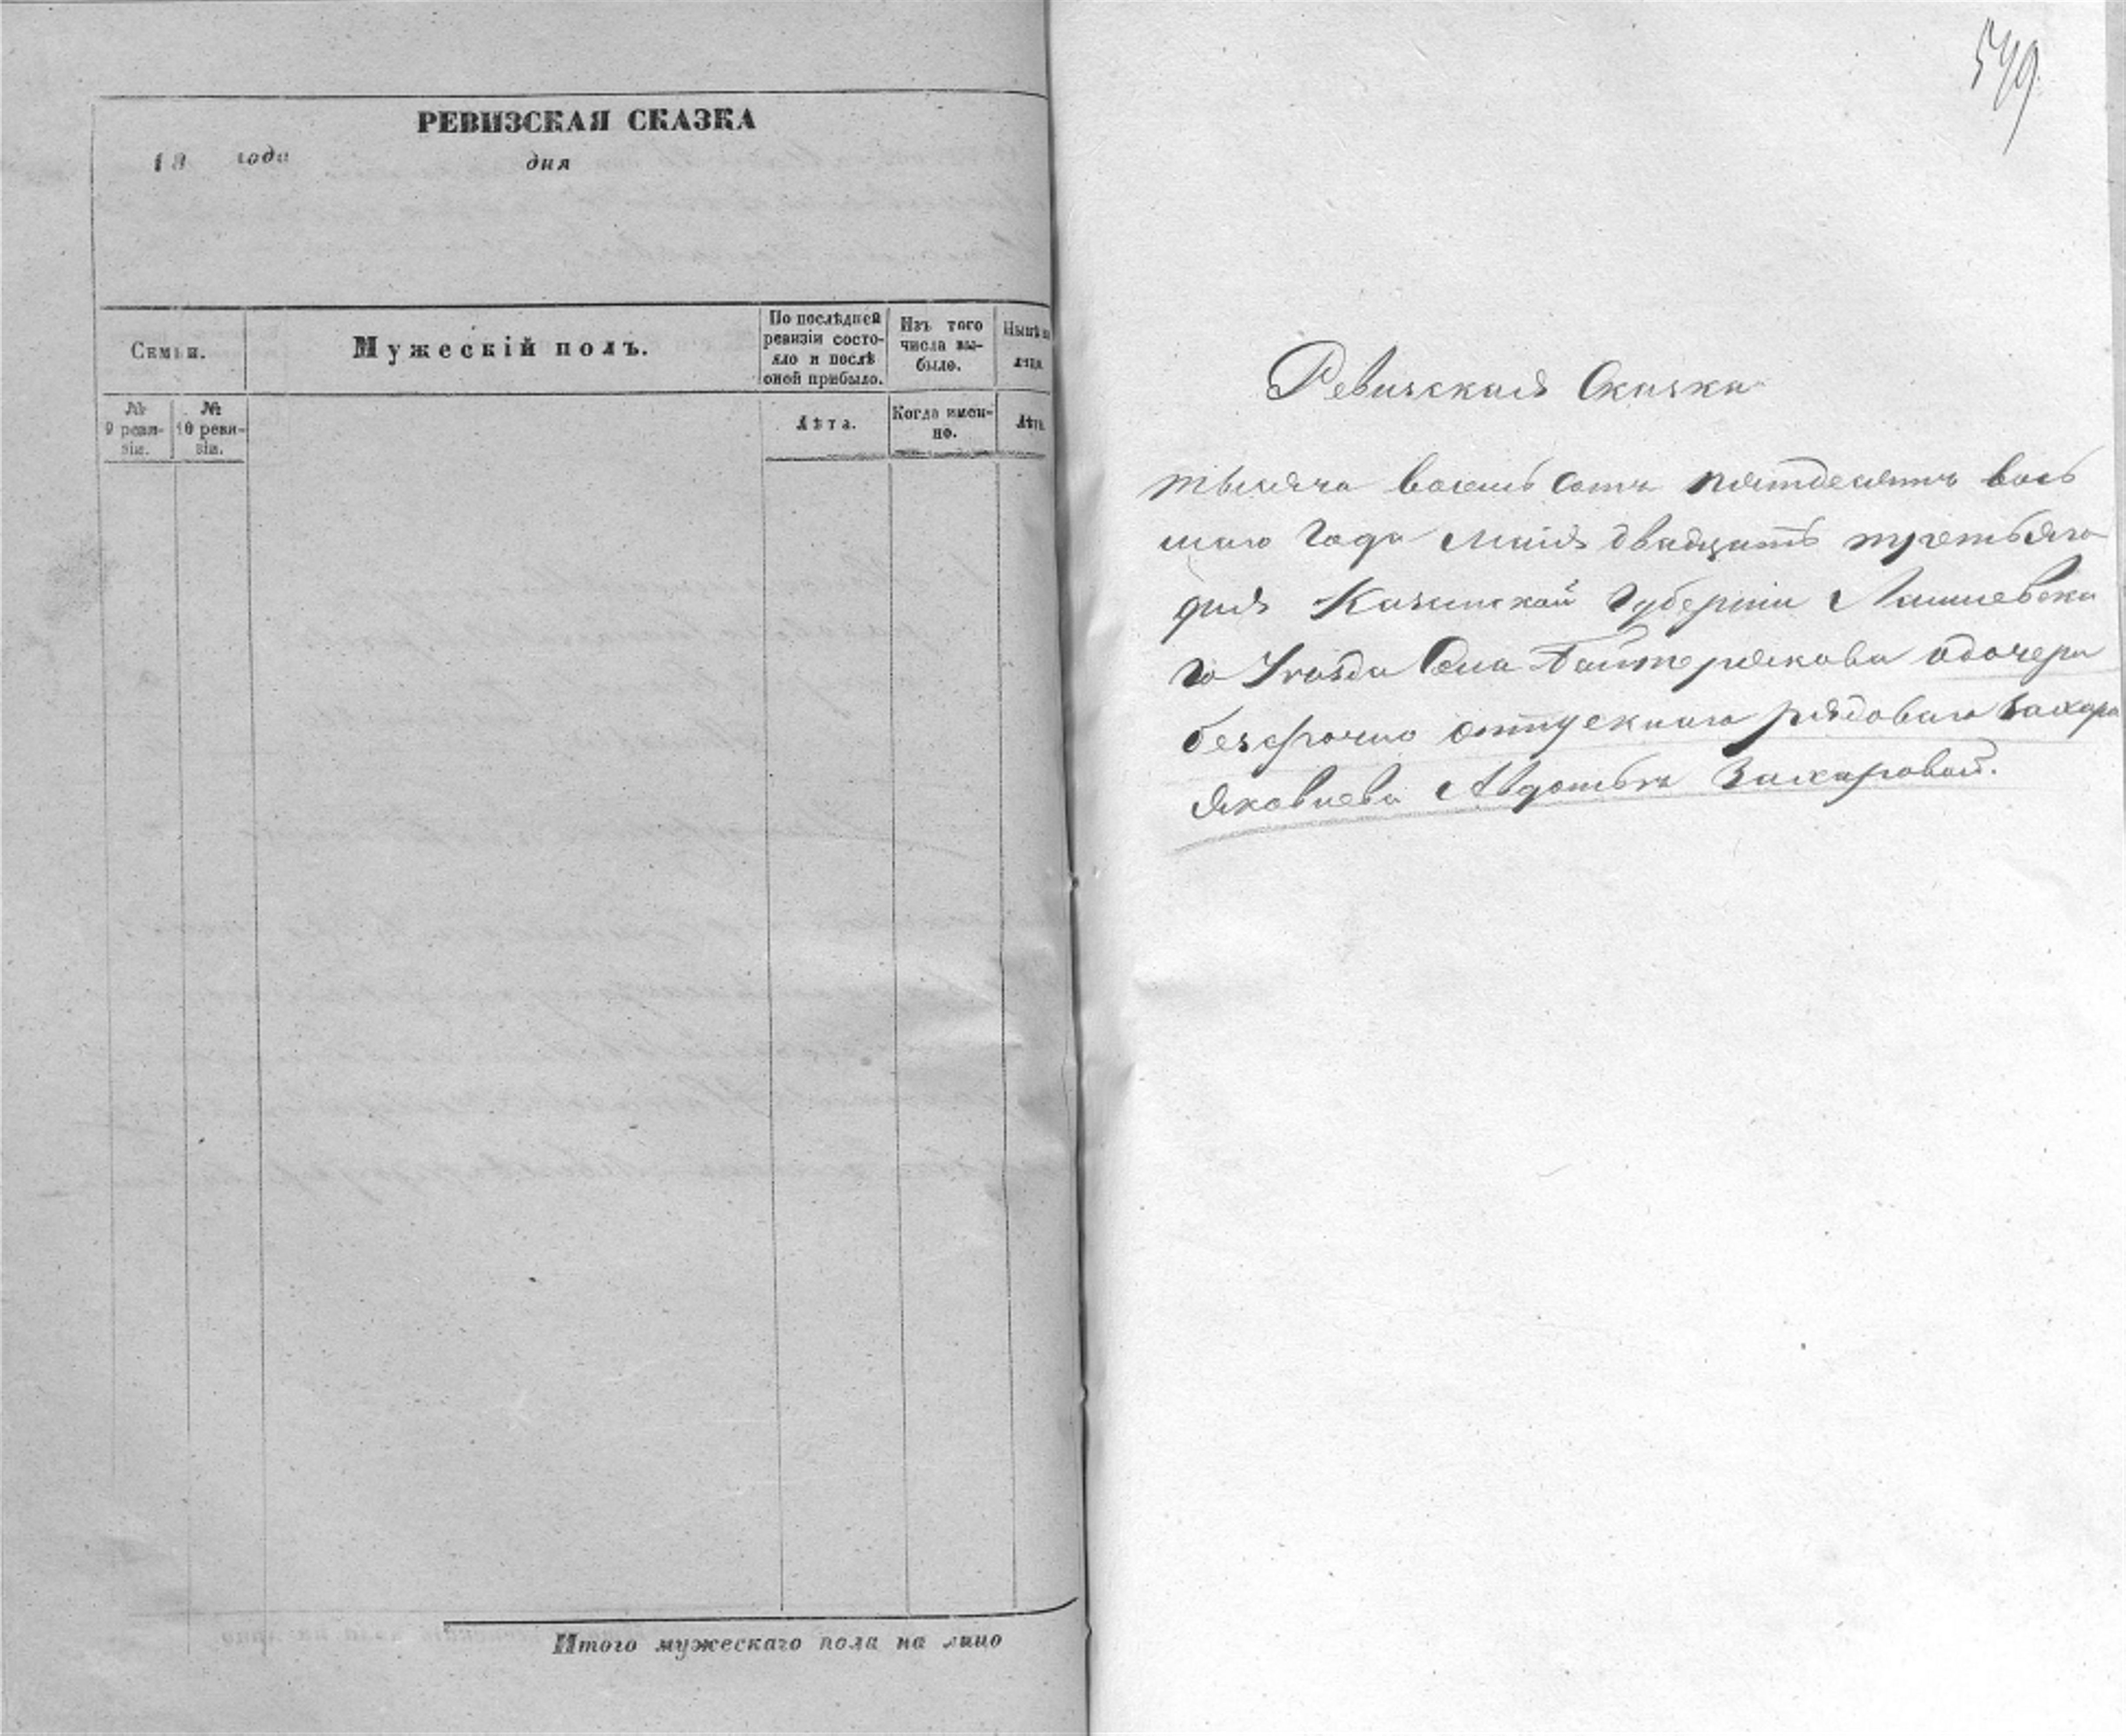 РЕВИЗСКАЯ СКАЗКА
18 года дня
Семьи.
Мужескій полъ.
По послѣдней ревизіи состояло и послѣ оной прибыло.
Изъ того числа выбыло.
Нынѣ на лицо.
№ 9 ревизіи.
№ 10 ревизіи.
Лѣта.
Когда именно.
Лѣта.
Итого мужескаго пола на лицо
579
Ревизская Сказка
тысяча восемь сотъ пятдесятъ вось
маго года маія двадцать третьяго
дня Казанской Губерніи Лаишевска
го Уѣзда Села Байтерякова одочери
безсрочно отпускнаго рядоваго Захара
Яковлева Авдотьѣ Захаровой.